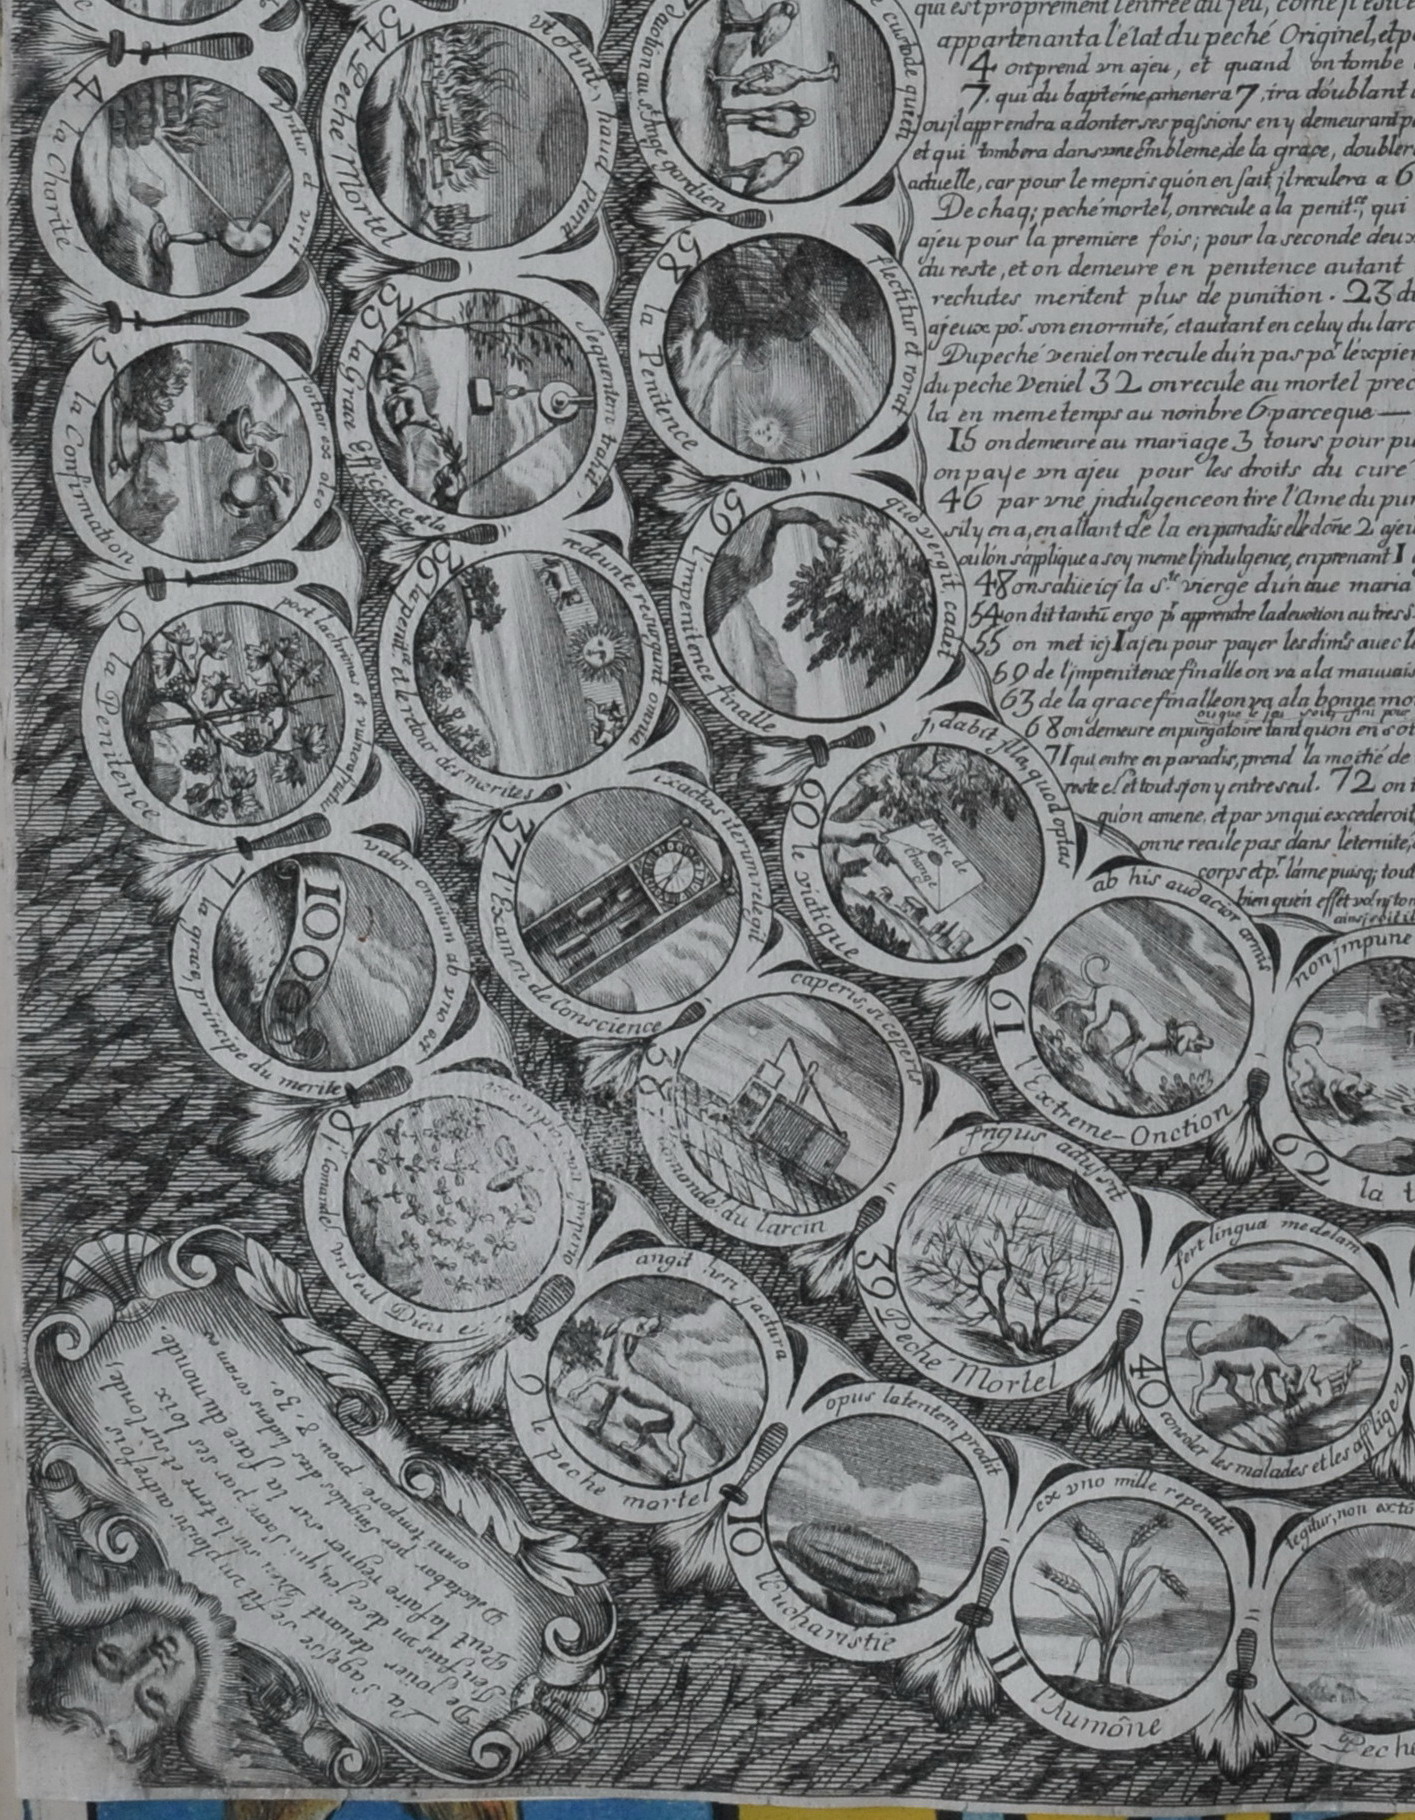 4 la Charité
oritur et vrit
5 la Confirmation
fortior ex oleo
6 la Penitence
post lachrimas et vulnera fructus
7 la grace, principe du merite
valor omnium ab vno est
1000
8
vn seul Dieu
9 le peche mortel
angit heri jactura
10 l'Eucharistie
opus latentem prodit
11 l'Aumône
ex vno mille rependit
12 Peche
tegitur, non
34 Peché Mortel
vt surd, haud parit
35 la Grace Efficace
sequentem trahit
36 la penit et le retour des merites
redeunte resurgunt omnia
37 l'Examen de Conscience
exactas iterum relegit
38 du larcin
caperis, si ceperis
39 Peché Mortel
frigus adussit
40 consoler les malades et les affliger
fert lingua medelam
devotion au st Ange gardien
custode quiete
58 la Penitence
flectitur et rorat
59 l'impenitence finalle
quò vergit, cadet
60 le viatique
j, dabit jlla, quod optas
lettre de change
61 l'Extreme-Onction
ab his audacior armis
62 la t
non jmpune
qui est proprement l'entrée du jeu, come jl est
appartenant a l'etat du peché Originel, et p
4 on prend vn ajeu, et quand on tombe
7. qui du baptéme amenera 7, ira doublant
ou jl apprendra a donter ses passions en y demeurant p
et qui tombera dans vne Embleme de la grace, doubler
actuelle, car pour le mepris qu'on en fait jl reculera a 6
De chaq; peché mortel, on recule a la penit.ce, qui
ajeu pour la premiere fois; pour la seconde deux
du reste, et on demeure en penitence autant
rechutes meritent plus de punition. 23 d
ajeux po.r son enormité, et autant en celuy du larc
Du peché veniel on recule d'un pas po.r l'expier
du peche veniel 32 on recule au mortel prec
la en meme temps au nombre 6 parceque —
15 on demeure au mariage 3 tours pour pu
on paye vn ajeu pour les droits du curé
46 par vne jndulgence on tire l'Ame du pur
s'il y en a, en allant de la en paradis elle doñe 2 ajeu
ou l'on s'applique a soy meme l'jndulgence, en prenant 1
48 on salüe icj la s.te vierge d'un aue maria
54 on dit tantũ ergo p.r apprendre la deuotion au tres s.
55 on met icj 1 ajeu pour payer les dim.s auec l
59 de l'jmpenitence finalle on va a la mauuais
63 de la grace finalle on va a la bonne mo
68 on demeure en purgatoire tant qu'on en sort
71 qui entre en paradis, prend la moitié de
reste et tout s'jon y entre seul. 72 on t
qu'on amene, et par vn qui excederoit
on ne recule pas dans l'eternité,
corps et p.r l'ame puisq; tout
bien qu'en effet
La Sagesse se fit vn plaisir autrefois
De jouer deuant Dieu sur la terre et sur l'onde,
J'en fais vn de ce jeu, qui sacré par ses loix
Peut la faire regner sur la face du monde.
Delectabar per singulos dies ludens coram eo
omni tempore. prou. 8. 30.